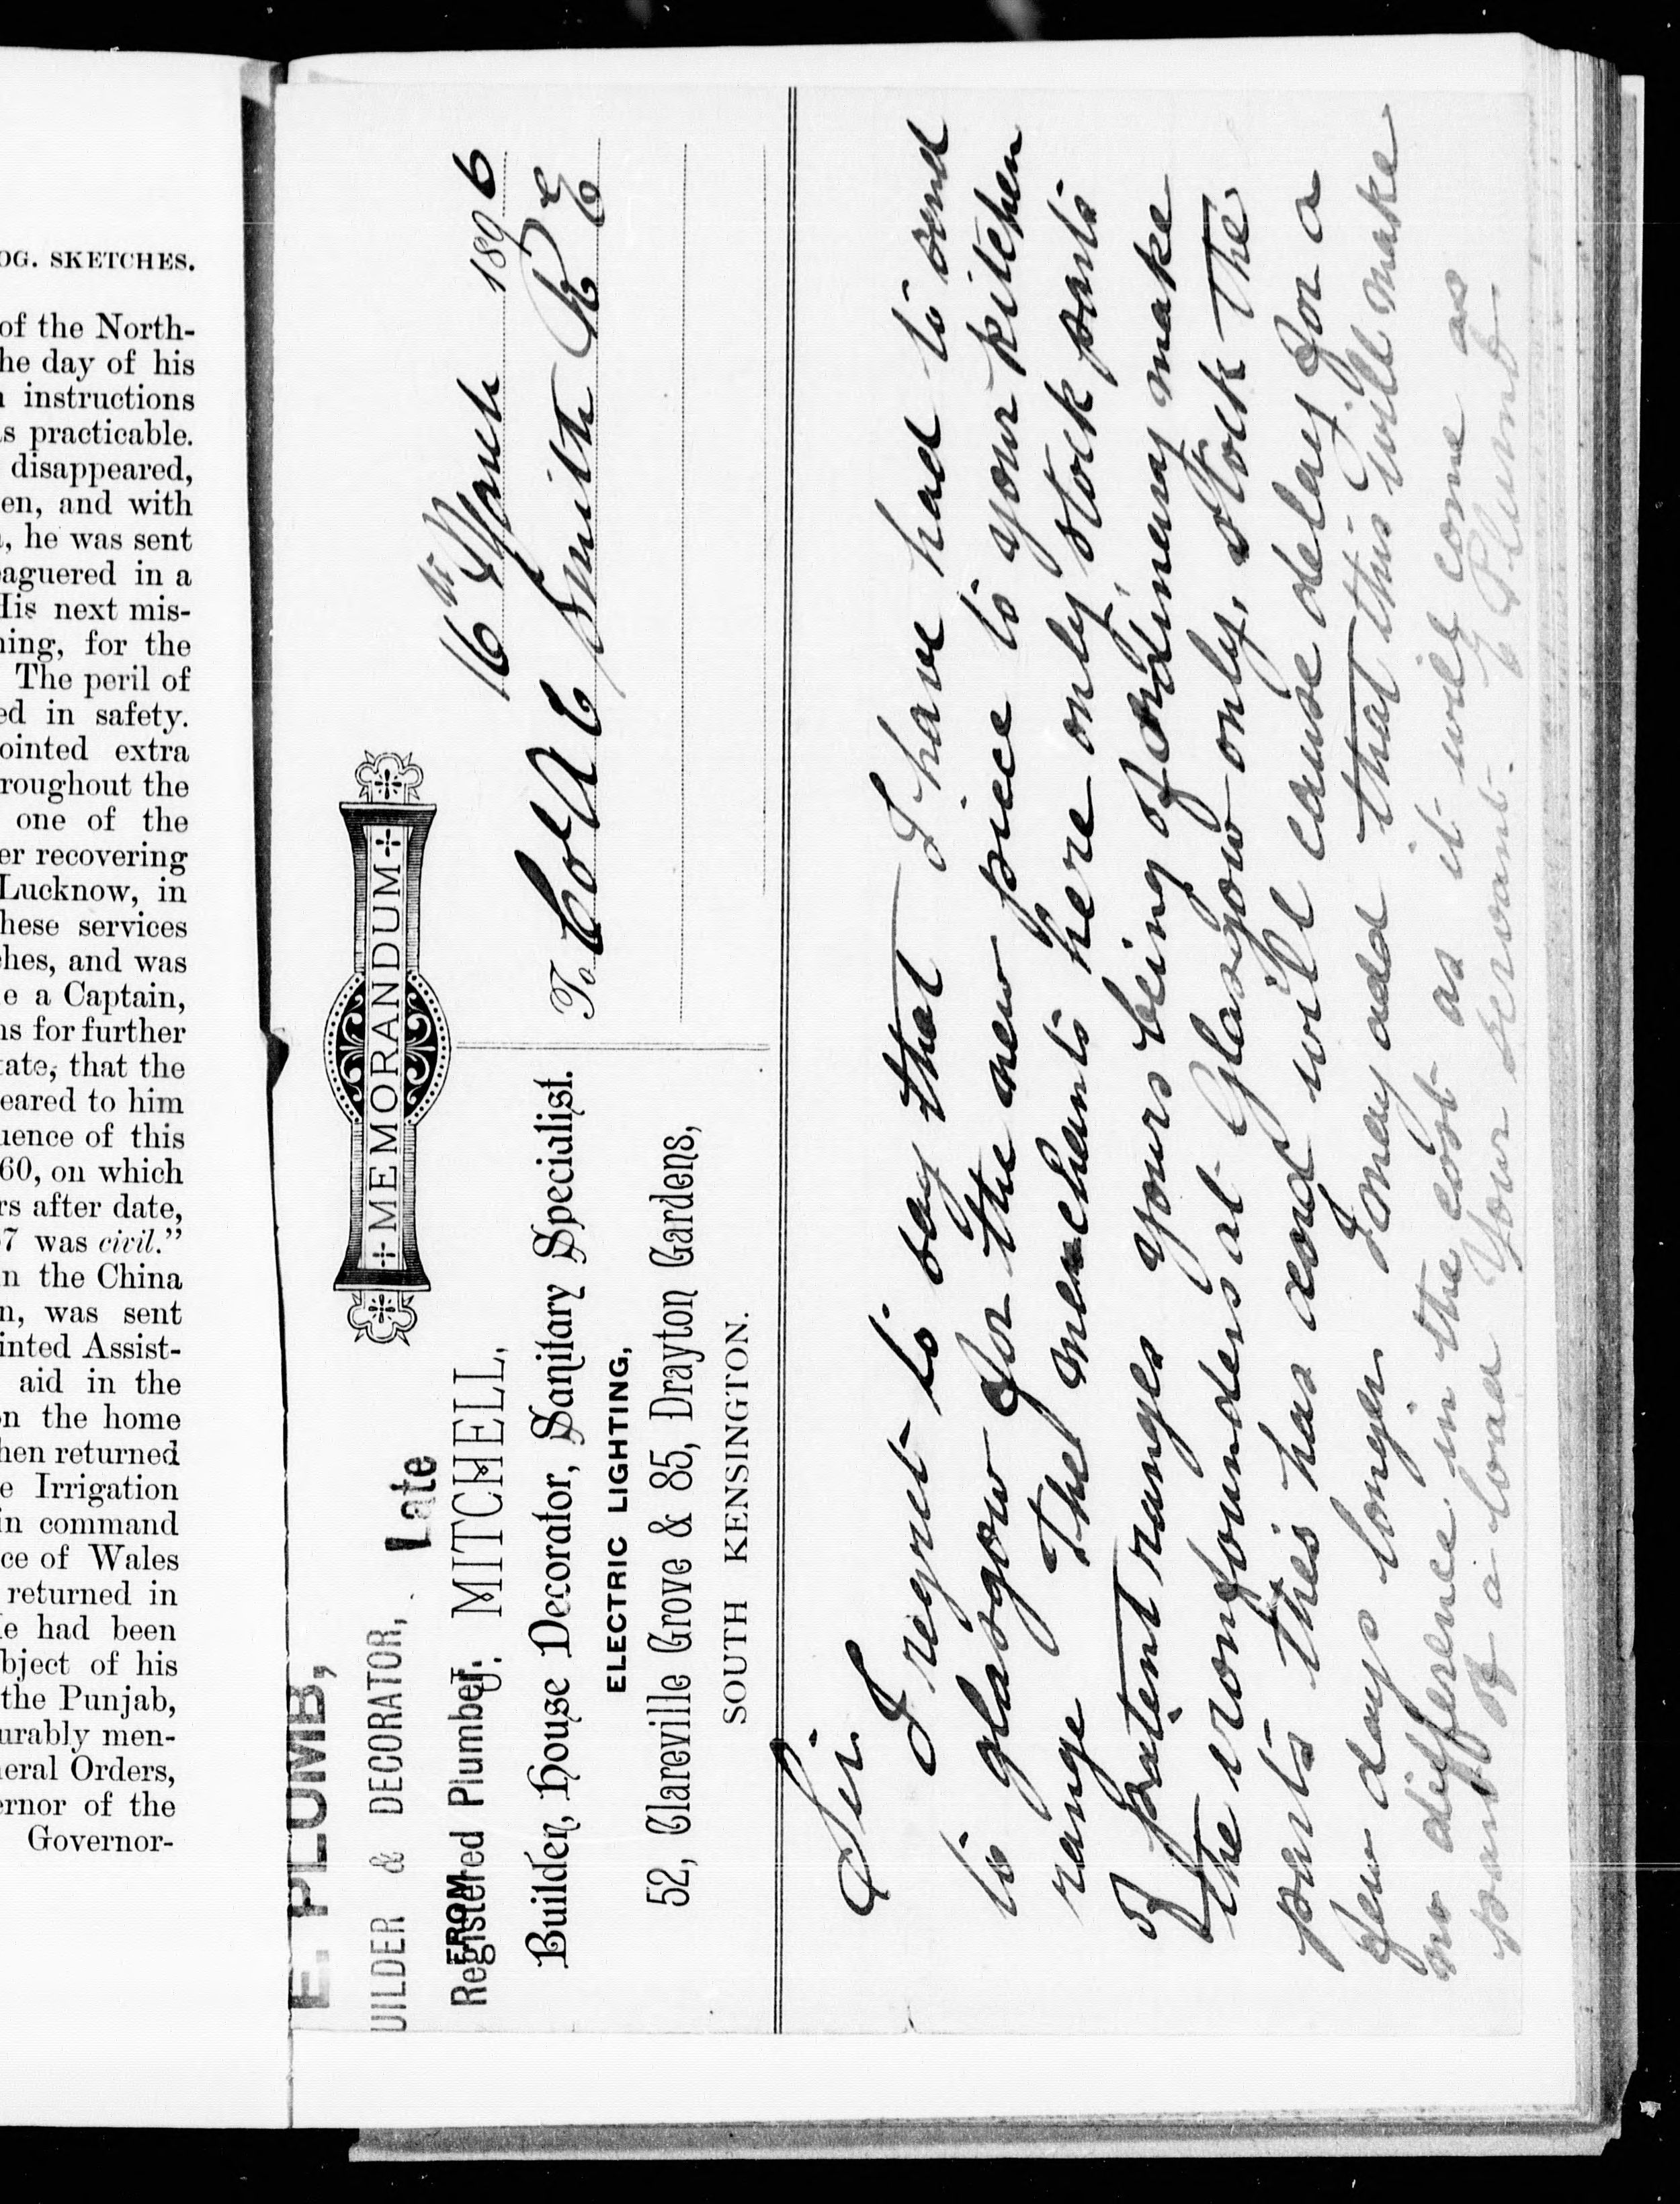 OG. SKETCHES.
of the North-
he day of his
instructions
s practicable.
disappeared,
en, and with
, he was sent
eaguered in a
His next mis-
ning, for the
The peril of
ed in safety.
ointed extra
roughout the
one of the
er recovering
Lucknow, in
hese services
ches, and was
e a Captain,
ns for further
tate, that the
eared to him
uence of this
60, on which
rs after date,
57 was civil."
in the China
n, was sent
inted Assist-
aid in the
on the home
hen returned
e Irrigation
in command
ce of Wales
returned in
He had been
bject of his
the Punjab,
urably men-
neral Orders,
ernor of the
Governor-
E. PLUMB,
UILDER & DECORATOR, Late
MEMORANDUM
FROM
Registered Plumber. J. MITCHELL,
Builder, House Decorator, Sanitary Specialist.
ELECTRIC LIGHTING,
52, Clareville Grove & 85, Drayton Gardens,
SOUTH KENSINGTON.
16th March 1896
To Col A E Smith R E
Sir
I regret to say that I have had to send
to glasgow for the new piece to your kitchen
range The merchants here only stock parts
of patent ranges yours being of ordinary make
the ironfounders at Glasgow only, stock the
parts this has and will cause delay for a
few days longer I may add that this will make
no difference in the cost as it will come as
part of a load Your servant. E Plumb.